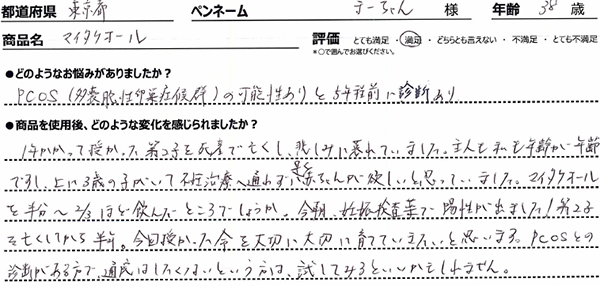 都道府県 東京都 ペンネーム まーちゃん 様 年齢 38 歳
商品名 マイタケオール 評価 とても満足・満足・どちらとも言えない・不満足・とても不満足
*○で選んでお選びください。
●どのようなお悩みがありましたか?
PCOS(多嚢胞性卵巣症候群)の可能性ありと5年程前に診断あり
●商品を使用後、どのような変化を感じられましたか?
1年かかって授かった第2子を死産で亡くし、悲しみに暮れていました。主人も私も年齢が年齢
ですし、上に3歳の子がいて不妊治療へ通わずに早く赤ちゃんが欲しいと思っていました。マイタケオール
を半分〜2/3ほど飲んだところでしょうか。今朝、妊娠検査薬で陽性が出ました!第2子
を亡くしてから半年。今回授かった命を大切に大切に育てていきたいと思います。PCOSとの
診断がある方で通院はしたくないという方は、試してみるといいかもしれません。